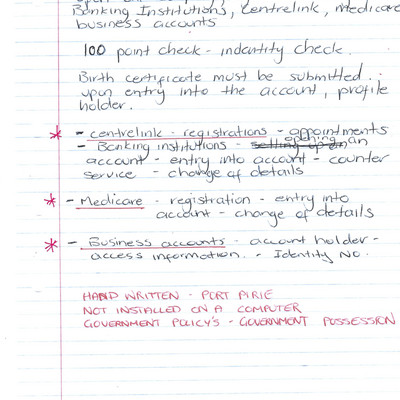 Banking Institutions, Centrelink, Medicare
business accounts
100 point check - indentity check.
Birth certificate must be submitted.
upon entry into the account, profile
holder.
* - centrelink - registrations - appointments
- Banking institutions - setting up an opening an
account - entry into account - counter
service - change of details
* - Medicare - registration - entry into
account - change of details
* - Business accounts - account holder -
access information. - Identity No.
HAND WRITTEN - PORT PIRIE
NOT INSTALLED ON A COMPUTER
GOVERNMENT POLICY'S - GOVERNMENT POSSESSION